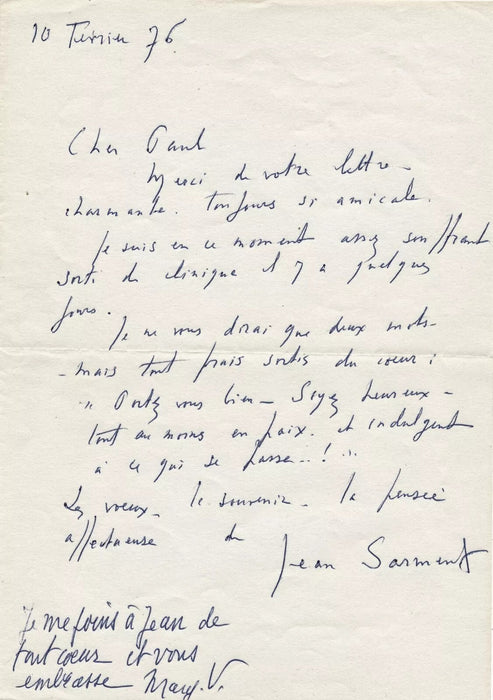 10 Février 76.
Cher Paul
Merci de votre lettre -
charmante. Toujours si amicale.
Je suis en ce moment assez souffrant
sorti de clinique il y a quelques
jours.
Je ne vous dirai que deux mots -
- mais tout frais sortis du coeur :
" Portez vous bien - Soyez heureux -
tout au moins en paix. et indulgent
à ce qui se passe..! "
Les voeux - le souvenir - la pensée
affectueuse de
Jean Sarment
Je me joins à Jean de
tout coeur et vous
embrasse Marg. V.